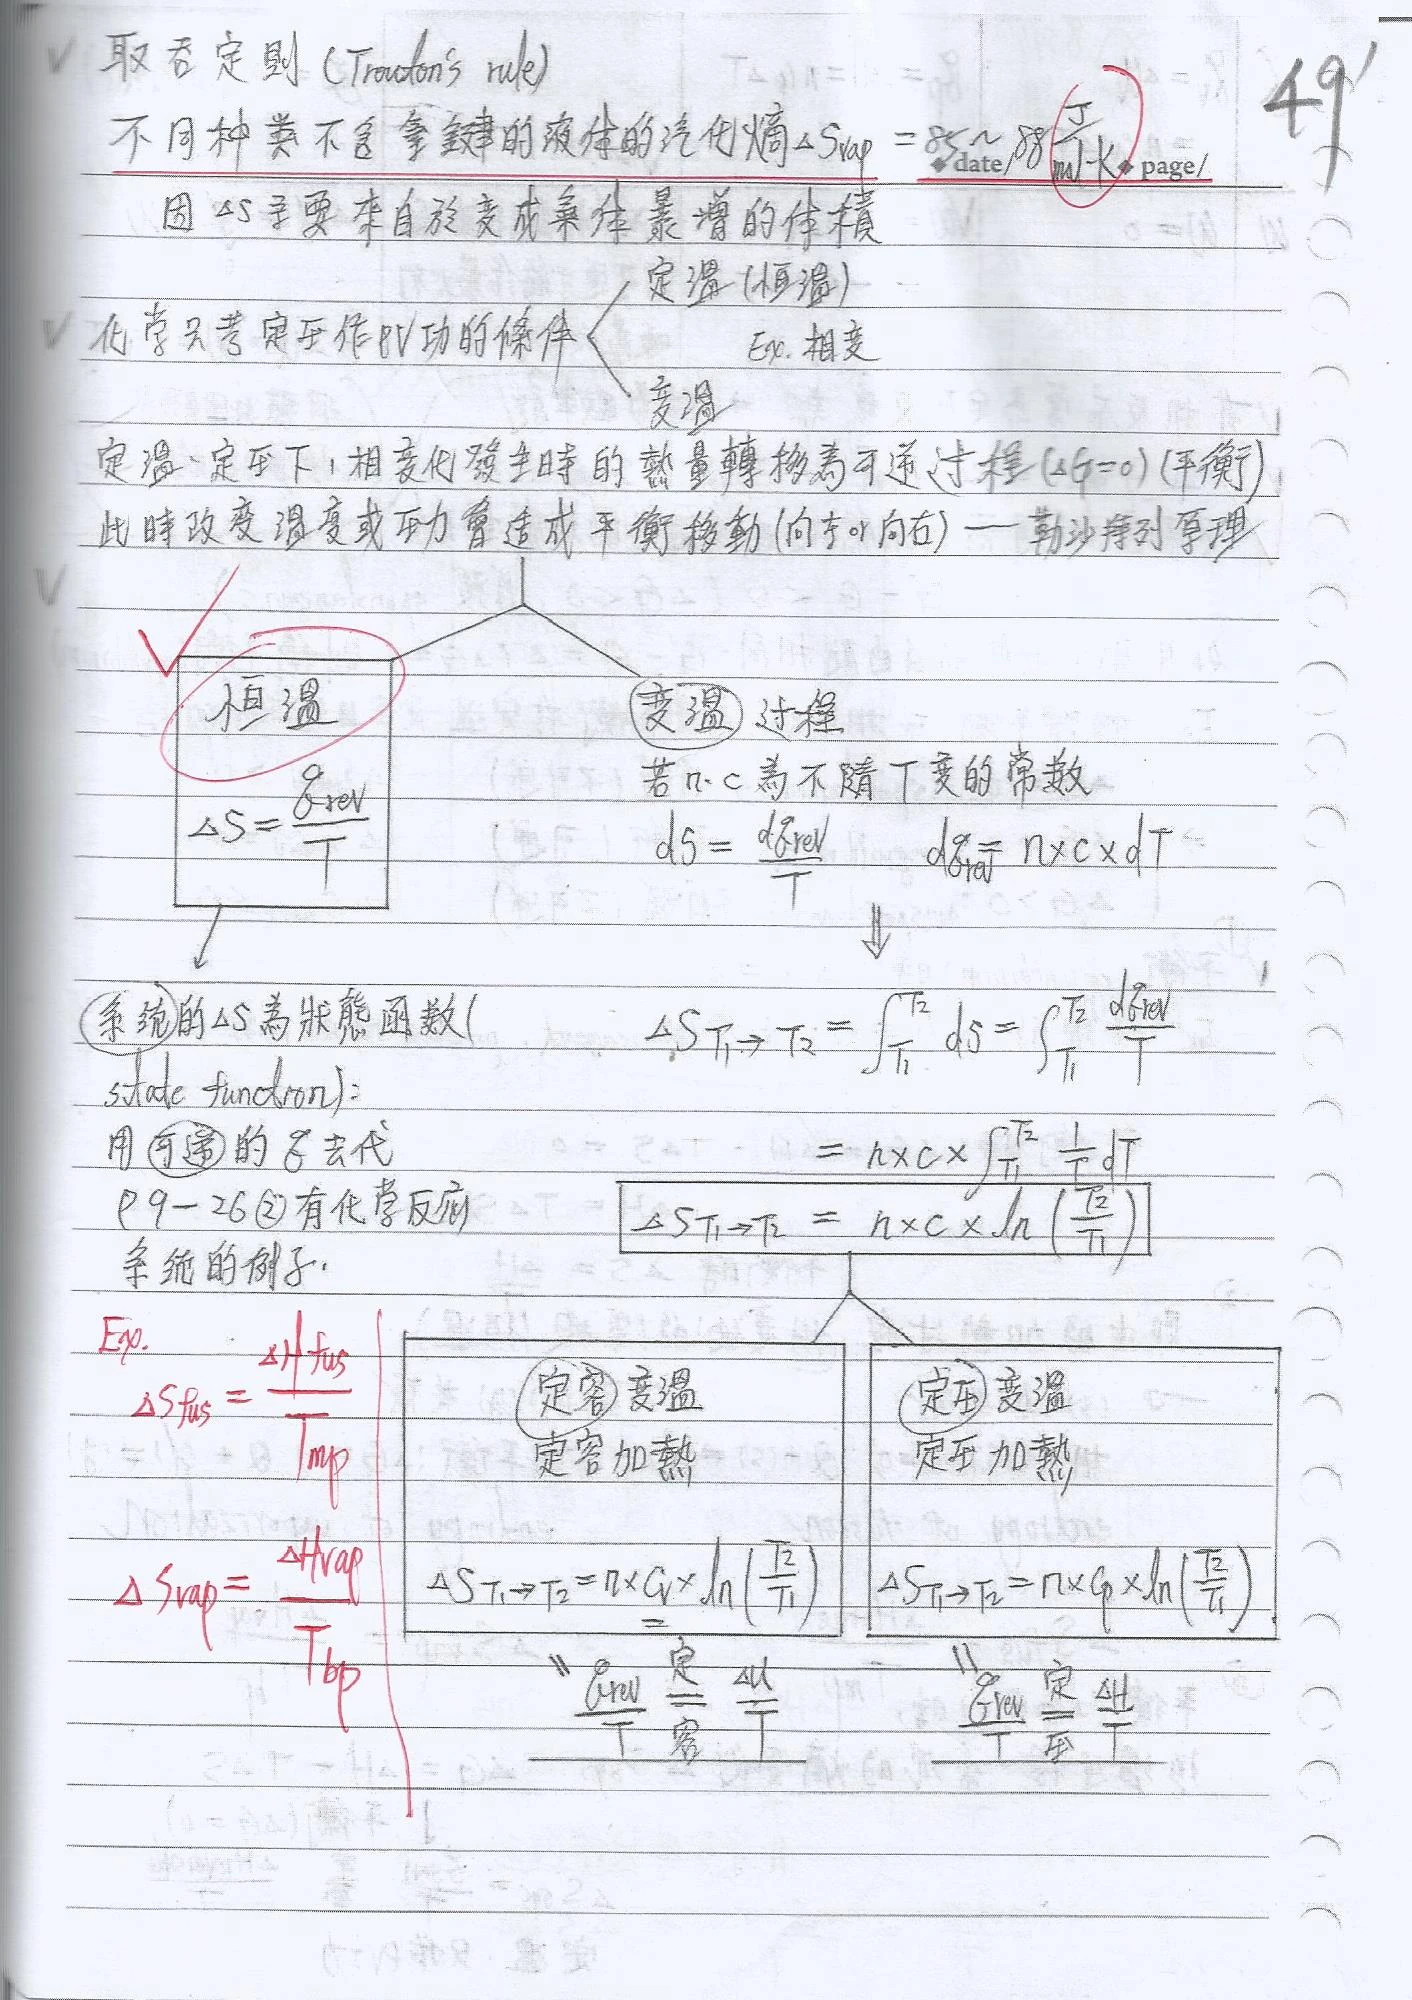 49'
取吞定則 (Trouton's rule)
不同种类不含氫鍵的液体的汽化熵 ΔSvap = 85~88 J/mol·K
◆date/ ◆page/
因 ΔS 主要來自於变成氣体暴增的体積
定溫 (恒溫)
化学只考定压作PV功的條件
Ex. 相变
变溫
定溫、定压下,相变化發生時的熱量轉移為可逆过程 (ΔG=0) (平衡)
此時改变溫度或压力會造成平衡移動 (向左or向右) — 勒沙特列原理
恒溫
ΔS = qrev/T
变溫 过程
若 n·c 為不隨T变的常数
dS = dqrev/T dqrev = n×c×dT
⇓
系統的ΔS為狀態函数(
state function):
用可逆的 q 去代
P9-26②有化学反应
系統的例子.
ΔS T1→T2 = ∫T1T2 dS = ∫T1T2 dqrev/T
= n×c×∫T1T2 1/T dT
ΔS T1→T2 = n×c×ln(T2/T1)
Ex.
ΔSfus = ΔHfus/Tmp
ΔSvap = ΔHvap/Tbp
定容变溫
定容加熱
ΔS T1→T2 = n×Cv×ln(T2/T1)
qrev/T 定容= ΔU/T
定压变溫
定压加熱
ΔS T1→T2 = n×Cp×ln(T2/T1)
qrev/T 定压= ΔH/T